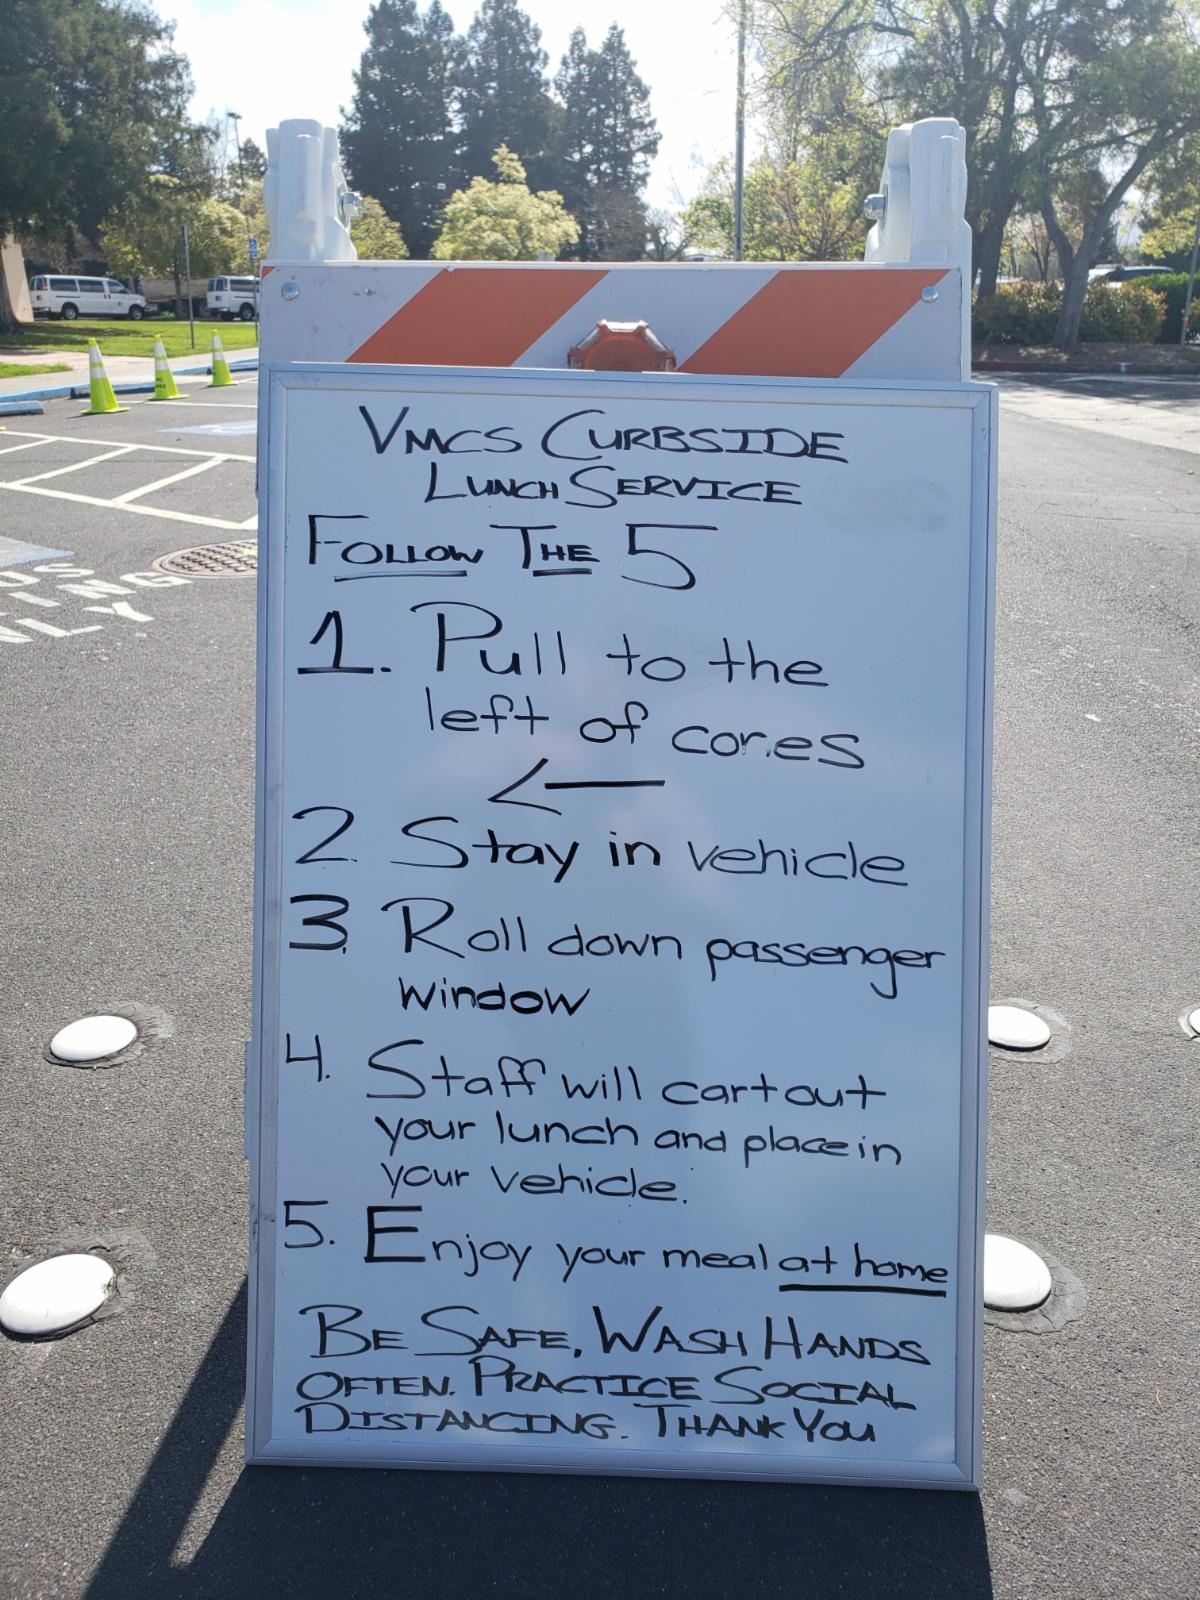 VMCS CURBSIDE
LUNCH SERVICE
FOLLOW THE 5
1. Pull to the
left of cones
2. Stay in vehicle
3. Roll down passenger
window
4. Staff will cart out
your lunch and place in
your vehicle.
5. Enjoy your meal at home
BE SAFE, WASH HANDS
OFTEN. PRACTICE SOCIAL
DISTANCING. THANK YOU
ONLY